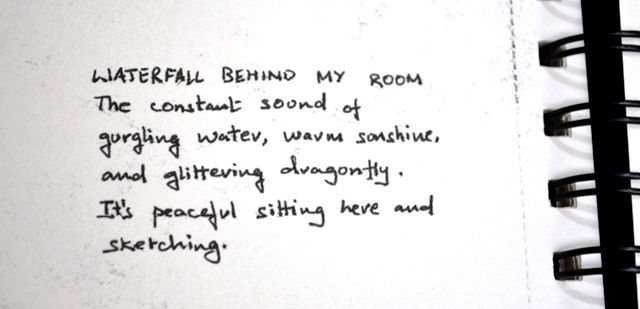 WATERFALL BEHIND MY ROOM
The constant sound of
gurgling water, warm sonshine,
and glittering dragonfly.
It's peaceful sitting here and
sketching.